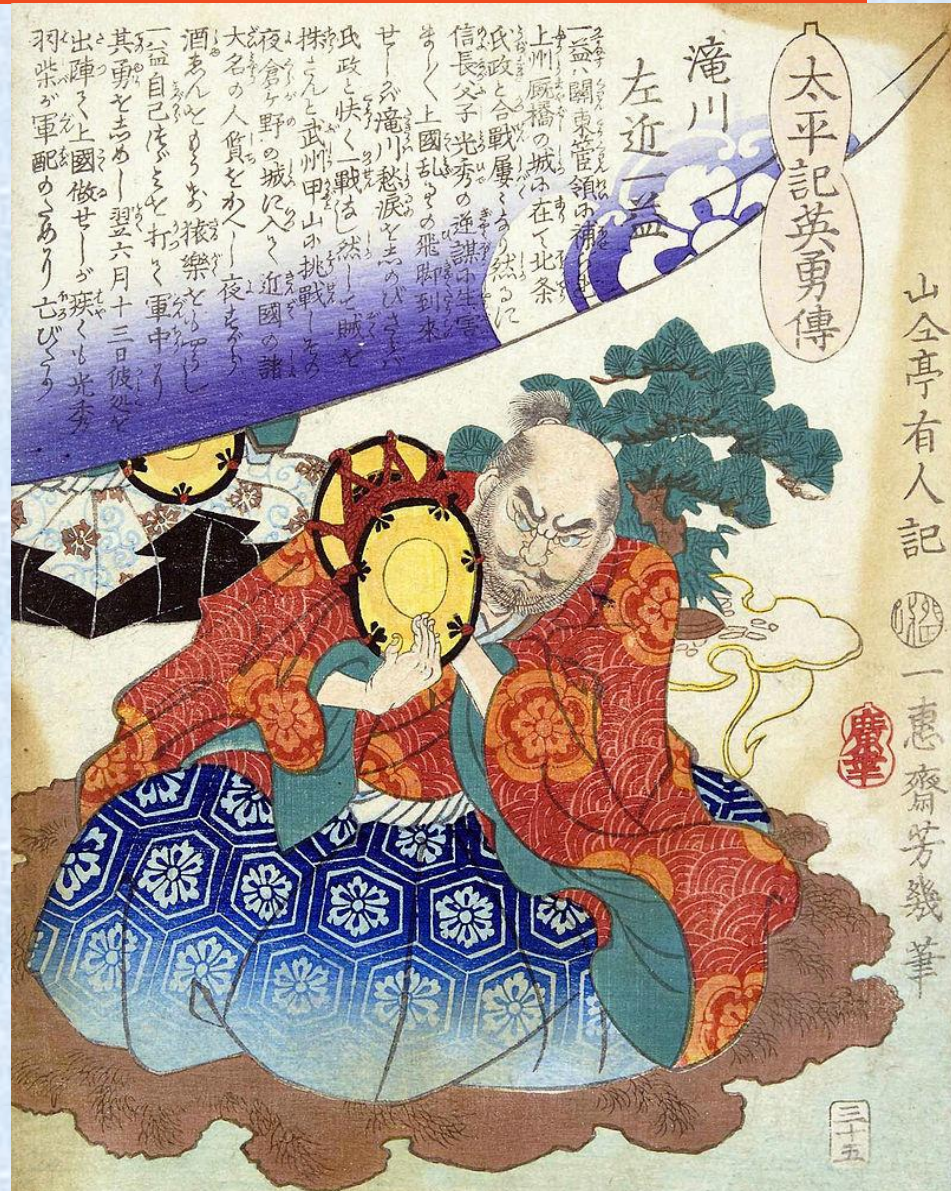 太平記英勇傳
滝川
左近一益
一益ハ關東管領に補
上州厩橋の城に在て北条
氏政と合戰屢々なり然るに
信長父子光秀の逆謀に生害
上國乱るの飛脚到來
せしが滝川愁涙をしのび
氏政と快く一戰なし然して賊を
誅さんと武州甲山に挑戰しその
夜倉ヶ野の城に入て近國の諸
大名の人質をかへし夜すがら
酒ゑんをもうけ猿樂を
一益自己つゞみを打て軍中
其勇をしめし翌六月十三日彼処を
出陣して上國做せしが疾くも光秀
羽柴が軍配の亡びたり
山々亭有人記
一惠齋芳幾筆
廣華
三十五